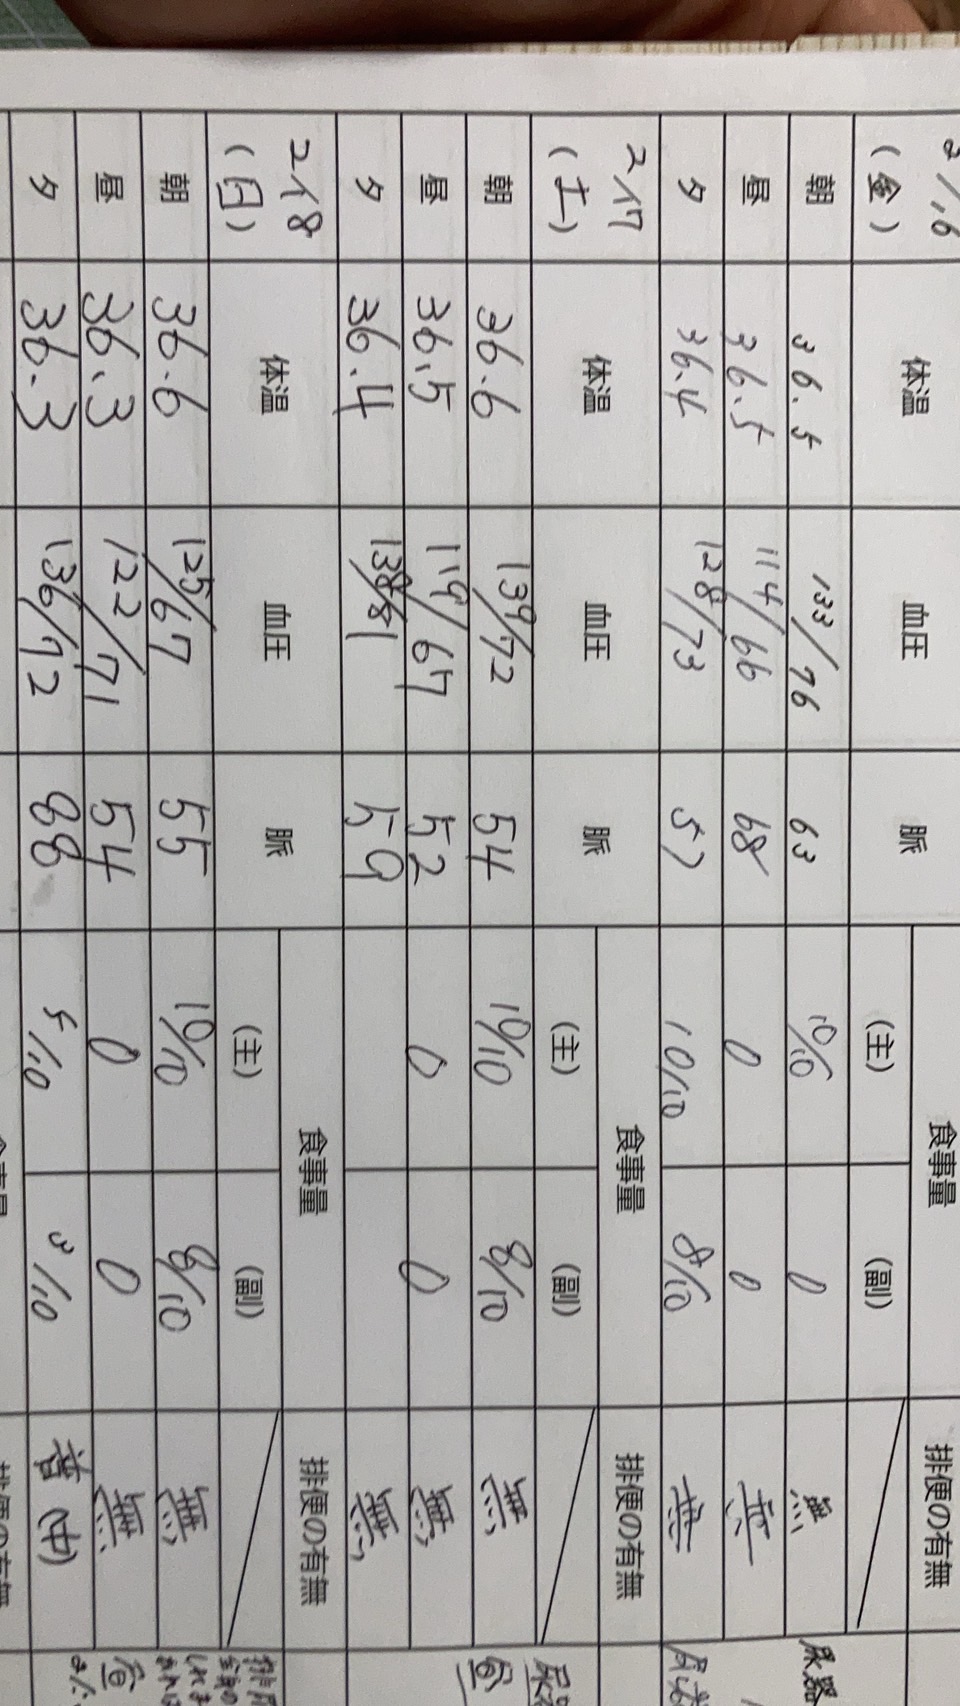 2/16
(金) 体温 血圧 脈 食事量 排便の有無
(主) (副)
朝 36.5 133/76 63 10/10 0 無
昼 36.5 114/66 68 0 0 無
夕 36.4 128/73 57 10/10 8/10 無
2/17
(土) 体温 血圧 脈 食事量 排便の有無
(主) (副)
朝 36.6 139/72 54 10/10 8/10 無
昼 36.5 119/67 52 0 0 無
夕 36.4 138/81 59 無
2/18
(日) 体温 血圧 脈 食事量 排便の有無
(主) (副)
朝 36.6 125/67 55 10/10 8/10 無
昼 36.3 122/71 54 0 0 無
夕 36.3 136/72 88 5/10 3/10 普(中)
尿器